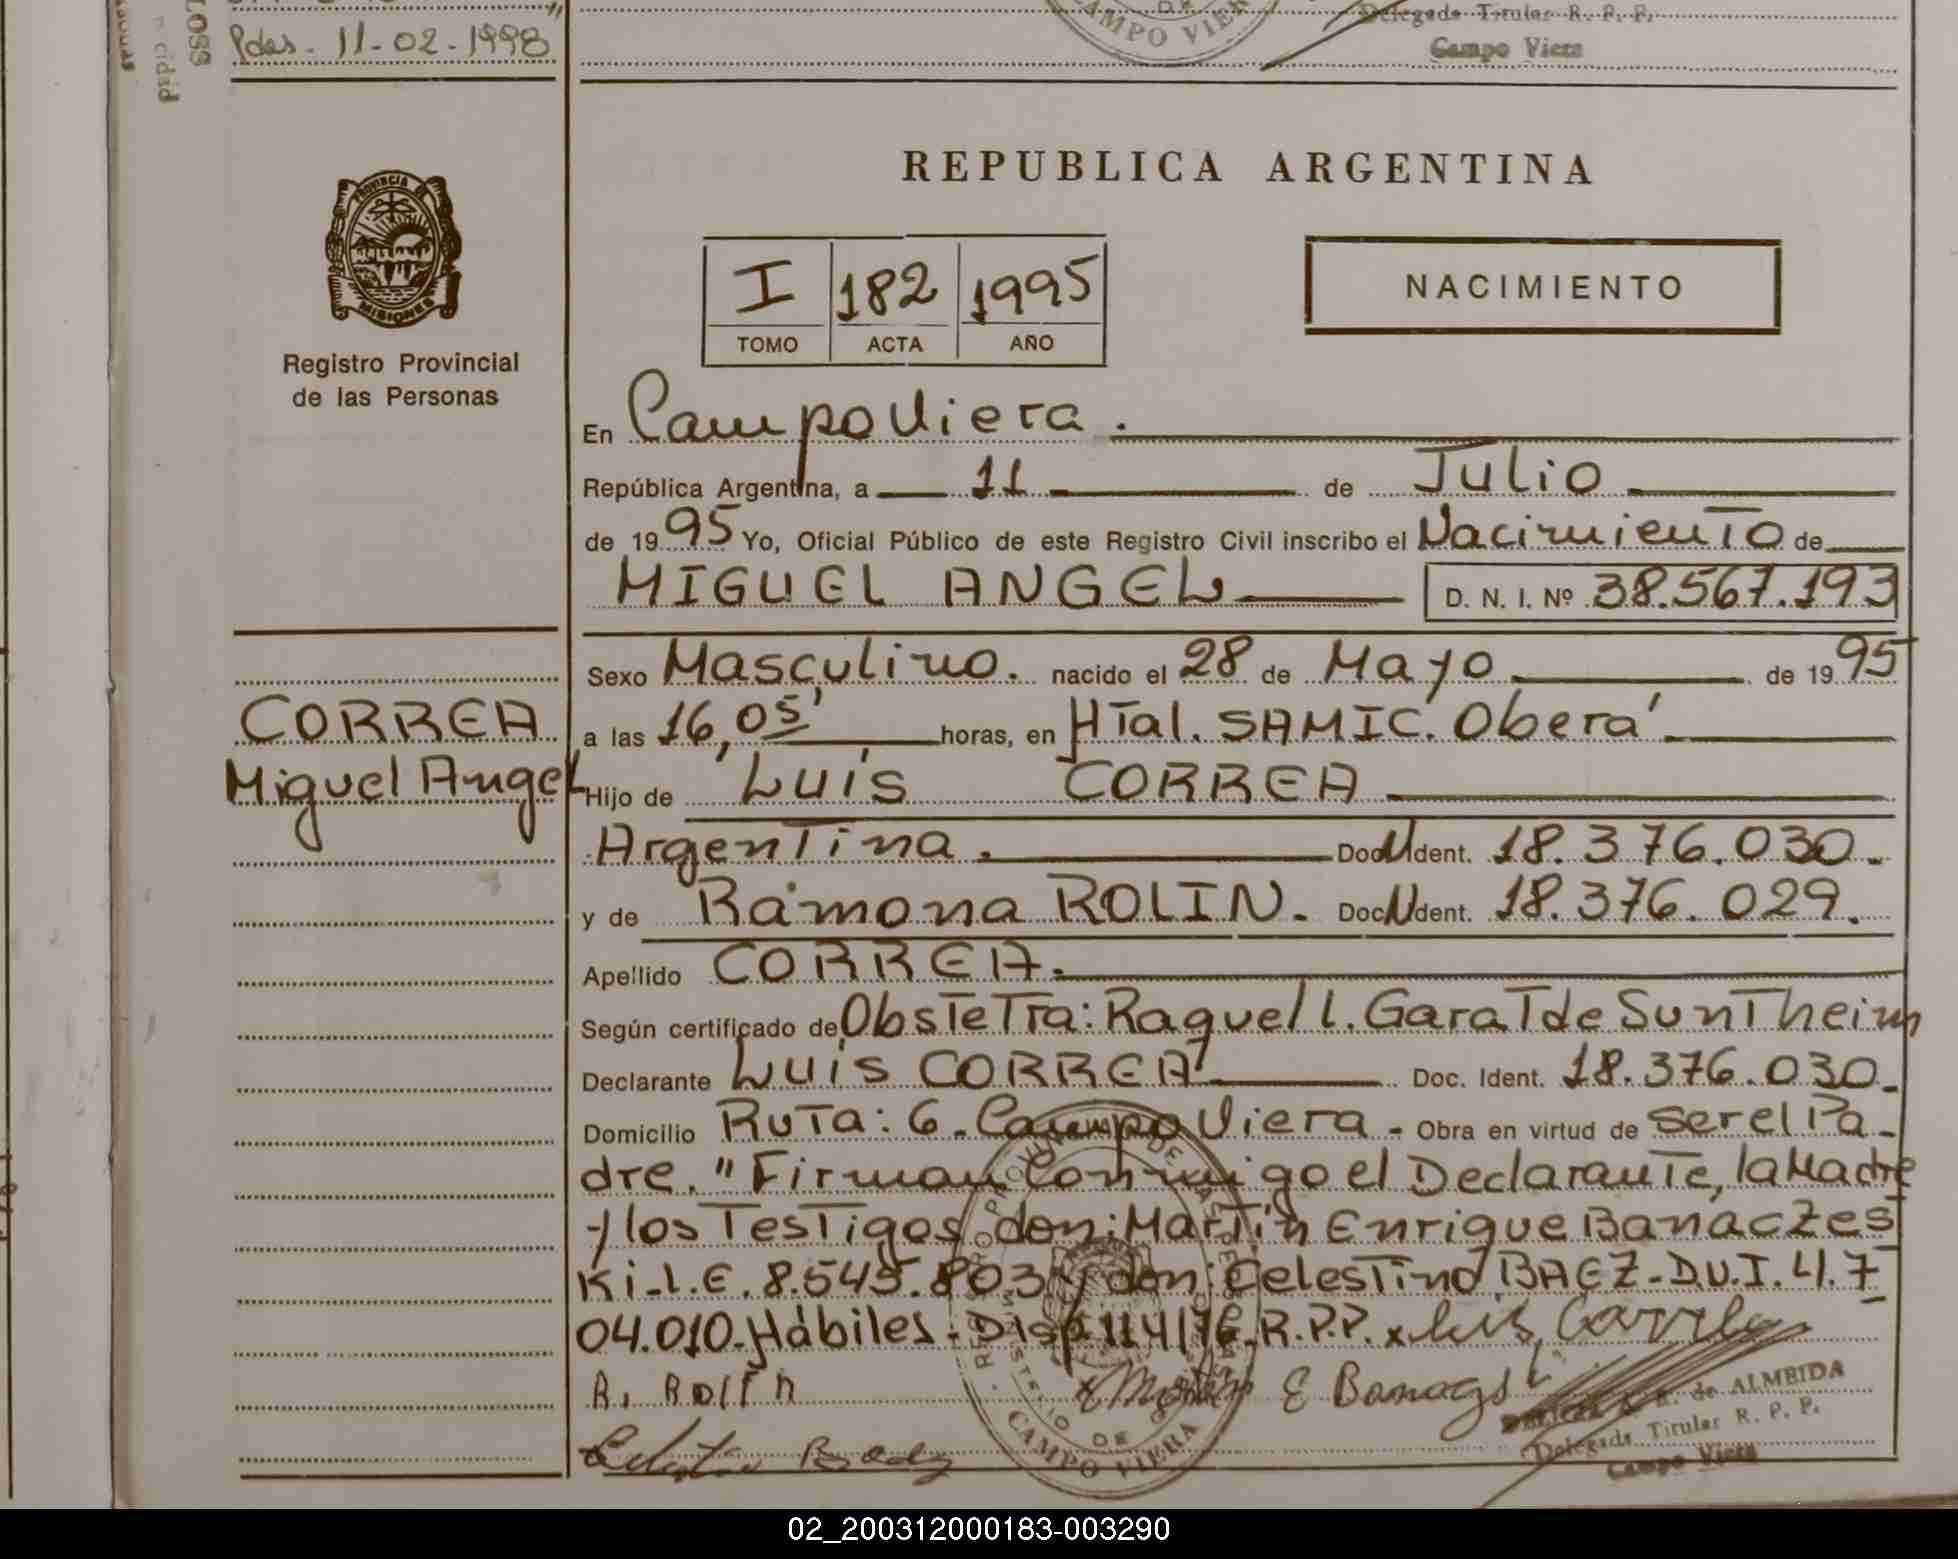 Pdas. 11-02-1998
Delegada Titular R. P. P.
Campo Viera
CAMPO VIERA
REPUBLICA ARGENTINA
PROVINCIA DE
MISIONES
Registro Provincial
de las Personas
I 182 1995
TOMO ACTA AÑO
NACIMIENTO
En Campo Viera.
República Argentina, a 11 de Julio
de 1995 Yo, Oficial Público de este Registro Civil inscribo el Nacimiento de
MIGUEL ANGEL D. N. I. Nº 38.567.193
Sexo Masculino. nacido el 28 de Mayo de 1995
CORREA
Miguel Angel
a las 16,05' horas, en HTal. SAMIC. Oberá
Hijo de Luís CORREA
Argentina. Doc. Ident. 18.376.030.
y de Ramona ROLIN. Doc. Ident. 18.376.029.
Apellido CORREA.
Según certificado de Obstetra: Raquel L. Garat de Suntheim
Declarante Luís CORREA Doc. Ident. 18.376.030.
Domicilio Ruta: 6. Campo Viera - Obra en virtud de ser el Pa-
dre. "Firman Conmigo el Declarante, la Madre
y los Testigos don: Martín Enrique Banaczes
Ki-L.E. 8.545.803 y don: Celestino BAEZ-D.U.I. 4.7
04.010-Hábiles-Disp. 114/76-R.P.P. x
R. Rolin
E Banacs
de ALMEIDA
Delegada Titular R. P. P.
Campo Viera
CAMPO VIERA
02_200312000183-003290